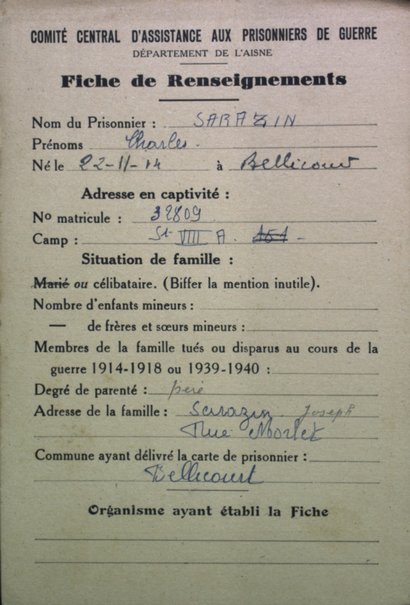 COMITÉ CENTRAL D'ASSISTANCE AUX PRISONNIERS DE GUERRE
DÉPARTEMENT DE L'AISNE
Fiche de Renseignements
Nom du Prisonnier : SARAZIN
Prénoms Charles.
Né le 22-11-14 à Bellicourt
Adresse en captivité :
No matricule : 32809
Camp : St VIII A. 151
Situation de famille :
Marié ou célibataire. (Biffer la mention inutile).
Nombre d'enfants mineurs :
— de frères et sœurs mineurs :
Membres de la famille tués ou disparus au cours de la
guerre 1914-1918 ou 1939-1940 :
Degré de parenté : père
Adresse de la famille : Sarazin Joseph
Rue
Commune ayant délivré la carte de prisonnier :
Bellicourt
Organisme ayant établi la Fiche